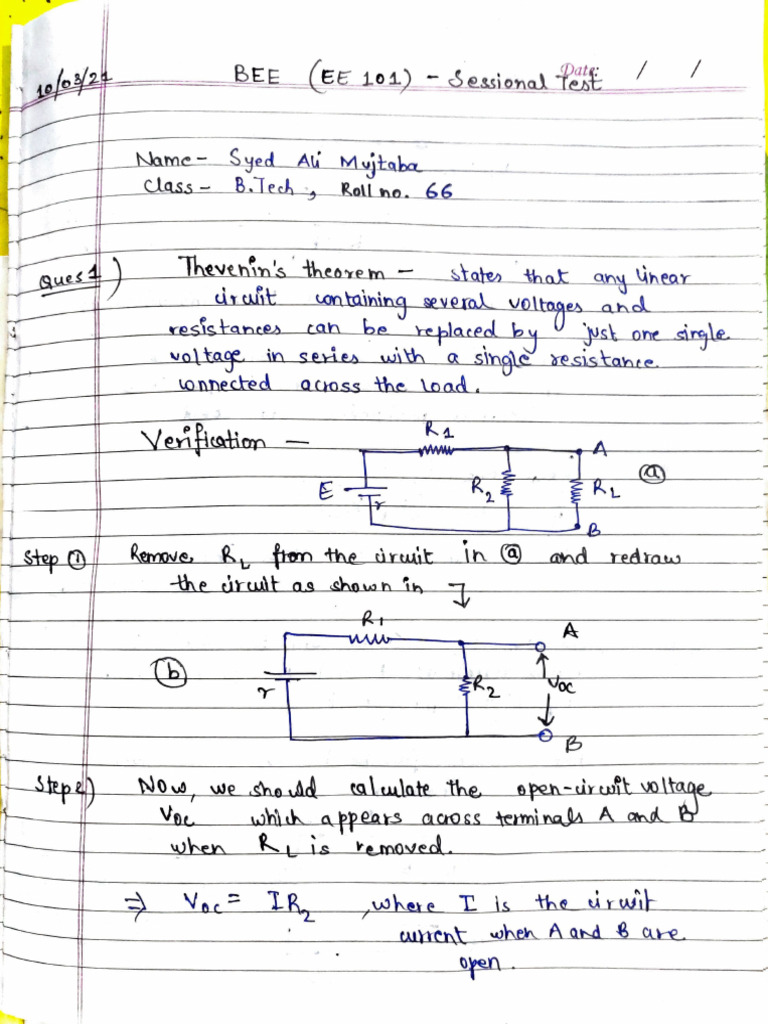 10/03/21 BEE (EE 101) - Sessional Test Date: / /
Name - Syed Ali Mujtaba
Class - B.Tech, Roll no. 66
Ques 1) Thevenin's theorem - states that any linear
circuit containing several voltages and
resistances can be replaced by just one single
voltage in series with a single resistance
connected across the load.
Verification -
R1
A
E r R2 RL (a)
B
Step (1) Remove RL from the circuit in (a) and redraw
the circuit as shown in
R1
A
(b) r R2 Voc
B
Step 2) Now, we should calculate the open-circuit voltage
Voc which appears across terminals A and B
when RL is removed.
⇒ Voc = IR2, where I is the circuit
current when A and B are
open.